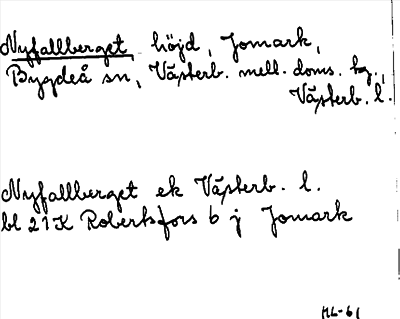 Nyfallberget, höjd, Jomark,
Bygdeå sn, Västerb. mell. doms. tg.,
Västerb. l.
Nyfallberget ek Västerb. l.
bl 21K Robertsfors 6 j Jomark
ML-61